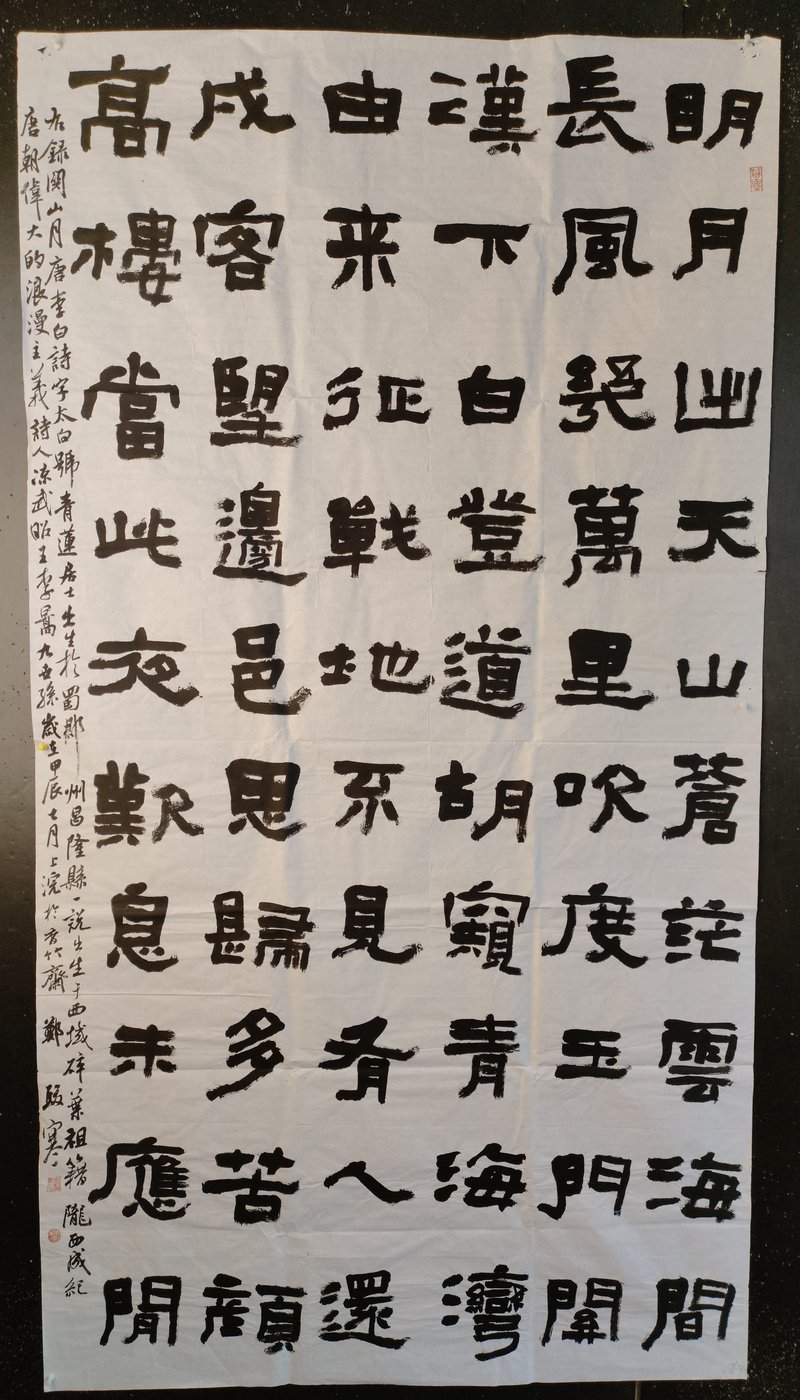 明月出天山蒼茫雲海間
長風幾萬里吹度玉門關
漢下白登道胡窺青海灣
由来征戰地不見有人還
戍客望邊邑思歸多苦顔
高樓當此夜歎息未應閒
右録関山月唐李白詩字太白號青蓮居士出生於蜀郡州昌隆縣一説出生于西域碎葉祖籍隴西成紀
唐朝偉大的浪漫主義詩人涼武昭王李暠九世孫歲在甲辰七月上浣於竹齋鄭寒